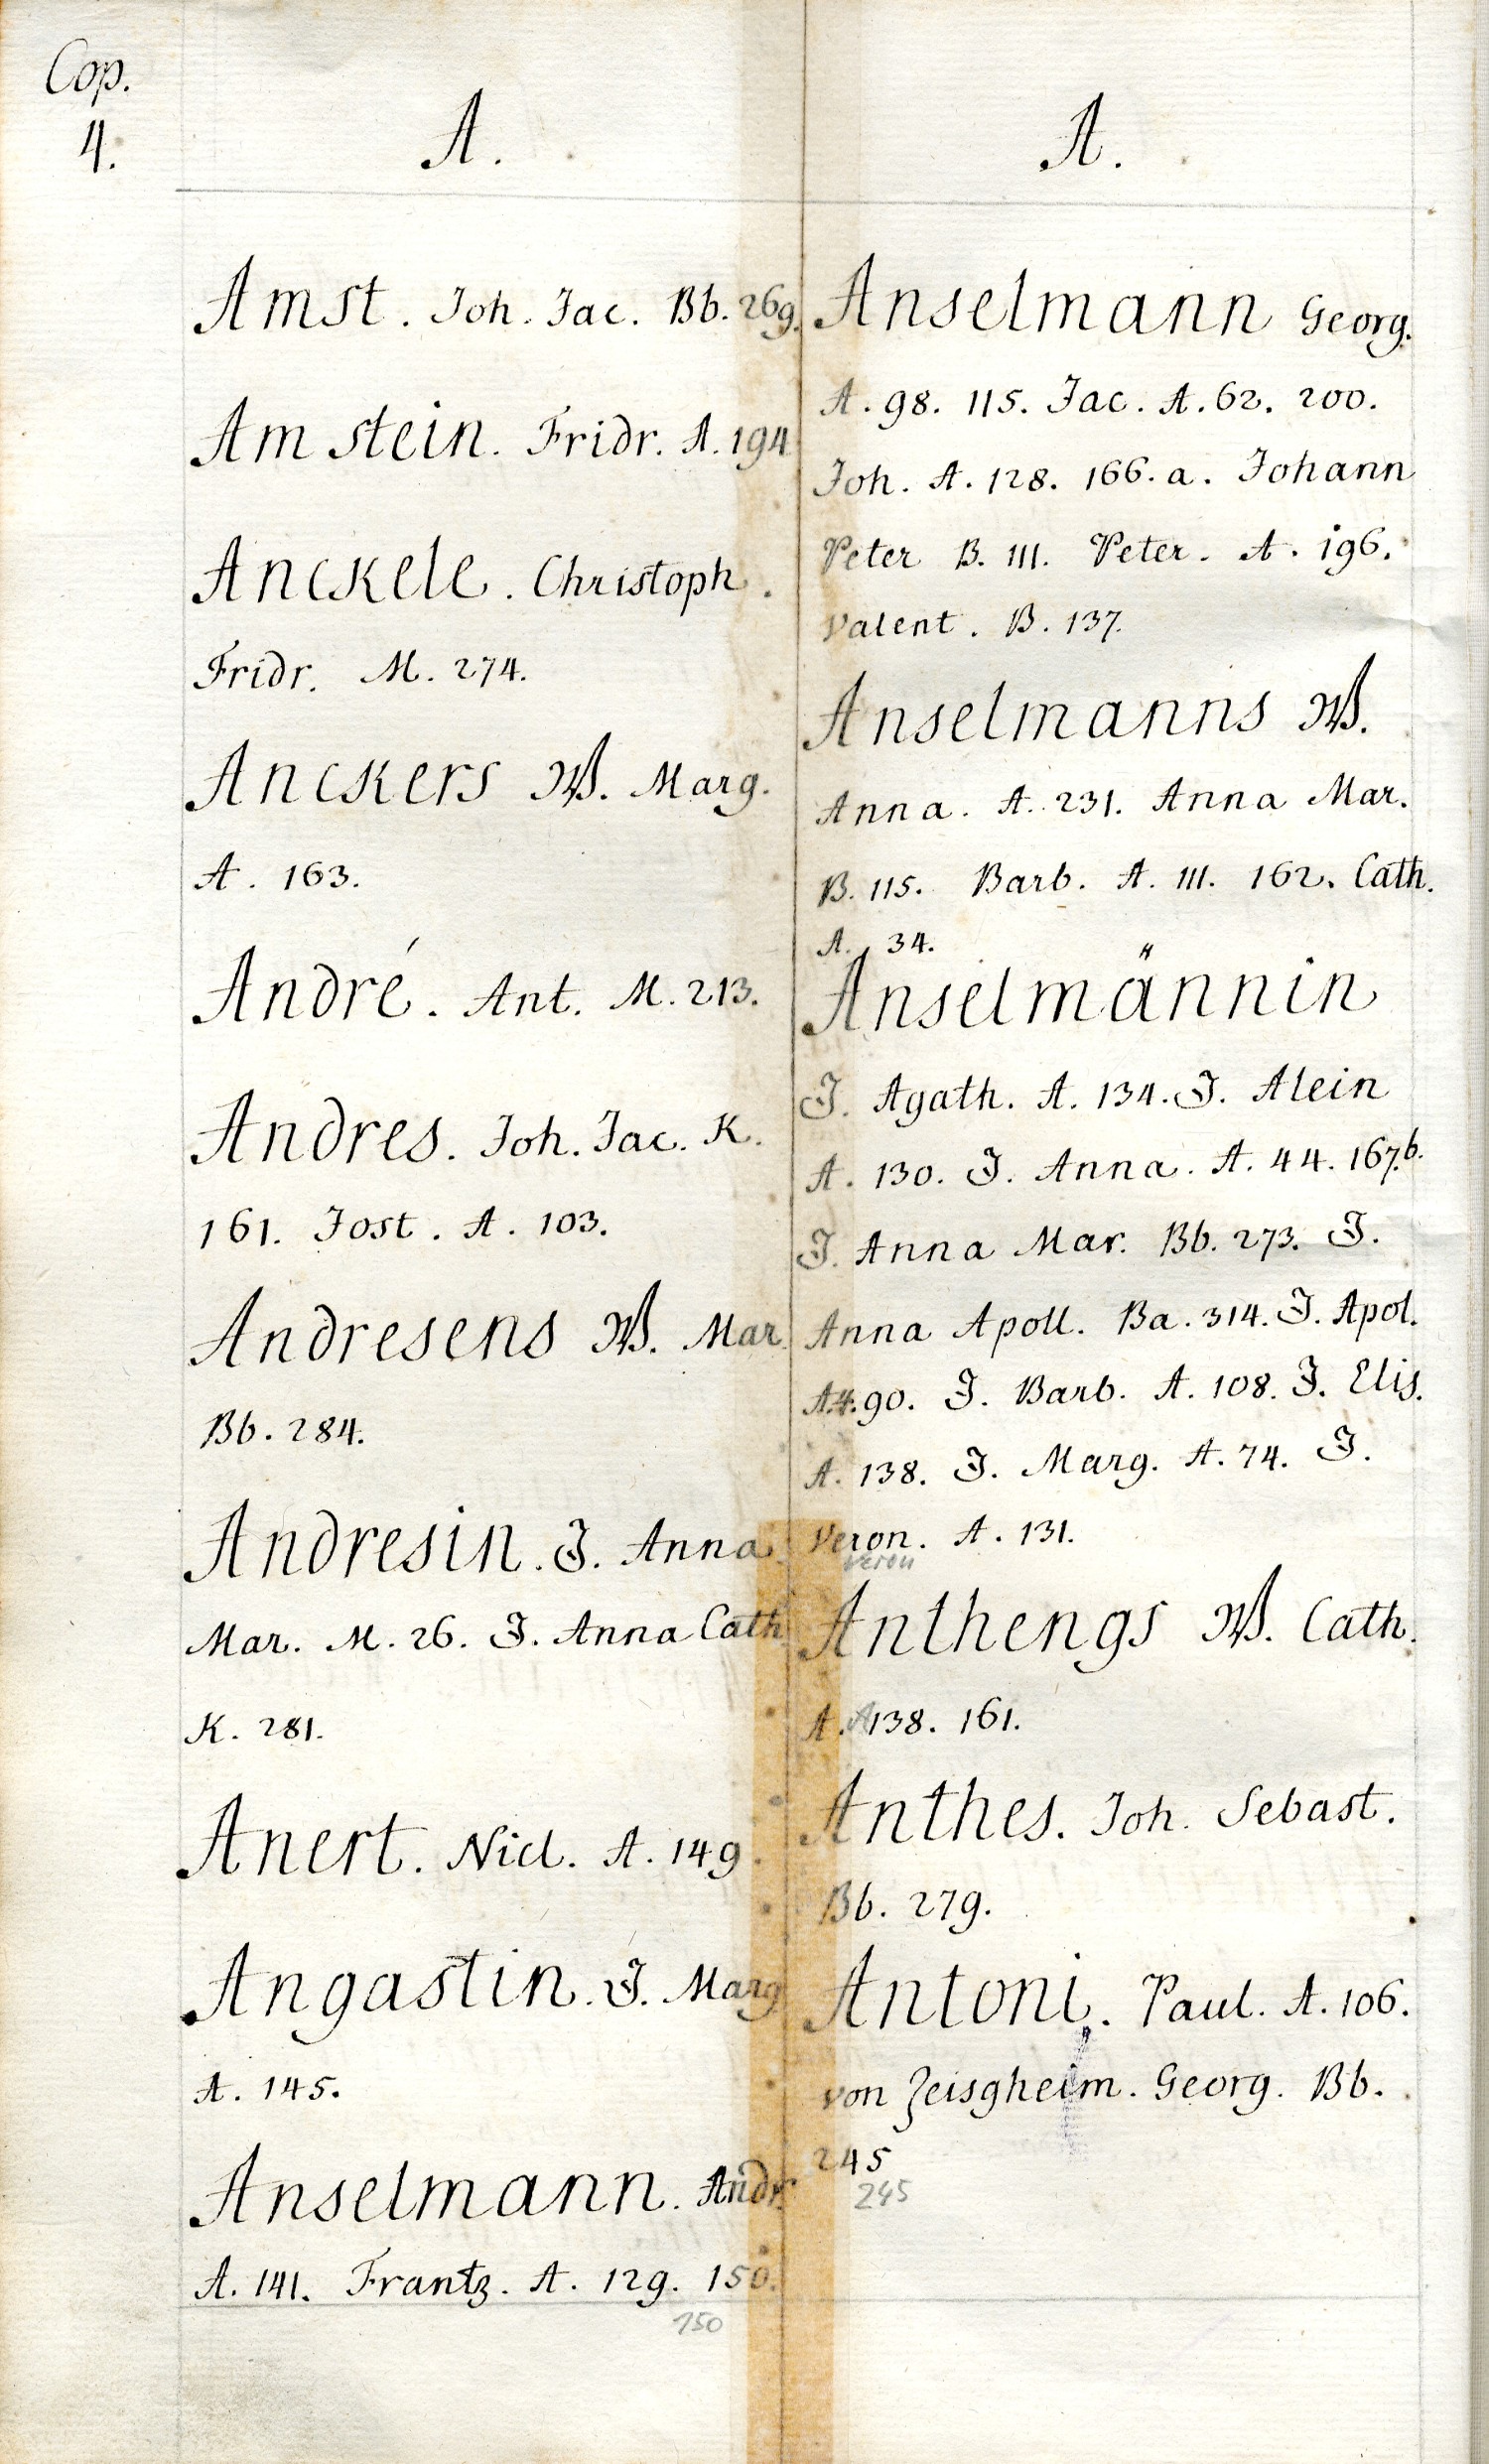 Cop.
4.
A.
Amst. Joh. Jac. Bb. 269.
Am stein. Fridr. A. 194
Anckele. Christoph.
Fridr. M. 274.
Anckers W. Marg.
A. 163.
André. Ant. M. 213.
Andres. Joh. Jac. K.
161. Jost. A. 103.
Andresens W. Mar.
Bb. 284.
Andresin. J. Anna
Mar. M. 26. J. Anna Cath
K. 281.
Anert. Nicl. A. 149.
Angastin. J. Marg
A. 145.
Anselmann. Andr.
A. 141. Frantz. A. 129. 150.
150
A.
Anselmann Georg.
A. 98. 115. Jac. A. 62. 200.
Joh. A. 128. 166. a. Johann
Peter B. 111. Peter. A. 196.
Valent. B. 137.
Anselmanns W.
Anna. A. 231. Anna Mar.
B. 115. Barb. A. 111. 162. Cath.
A. 34.
Anselmännin
J. Agath. A. 134. J. Alein
A. 130. J. Anna. A. 44. 167.b.
J. Anna Mar. Bb. 273. J.
Anna Apoll. Ba. 314. J. Apol.
A. 90. J. Barb. A. 108. J. Elis.
A. 138. J. Marg. A. 74. J.
Veron. A. 131.
Veron
Anthengs W. Cath.
A. A 138. 161.
Anthes. Joh. Sebast.
Bb. 279.
Antoni. Paul. A. 106.
von Zeisgheim. Georg. Bb.
245
245